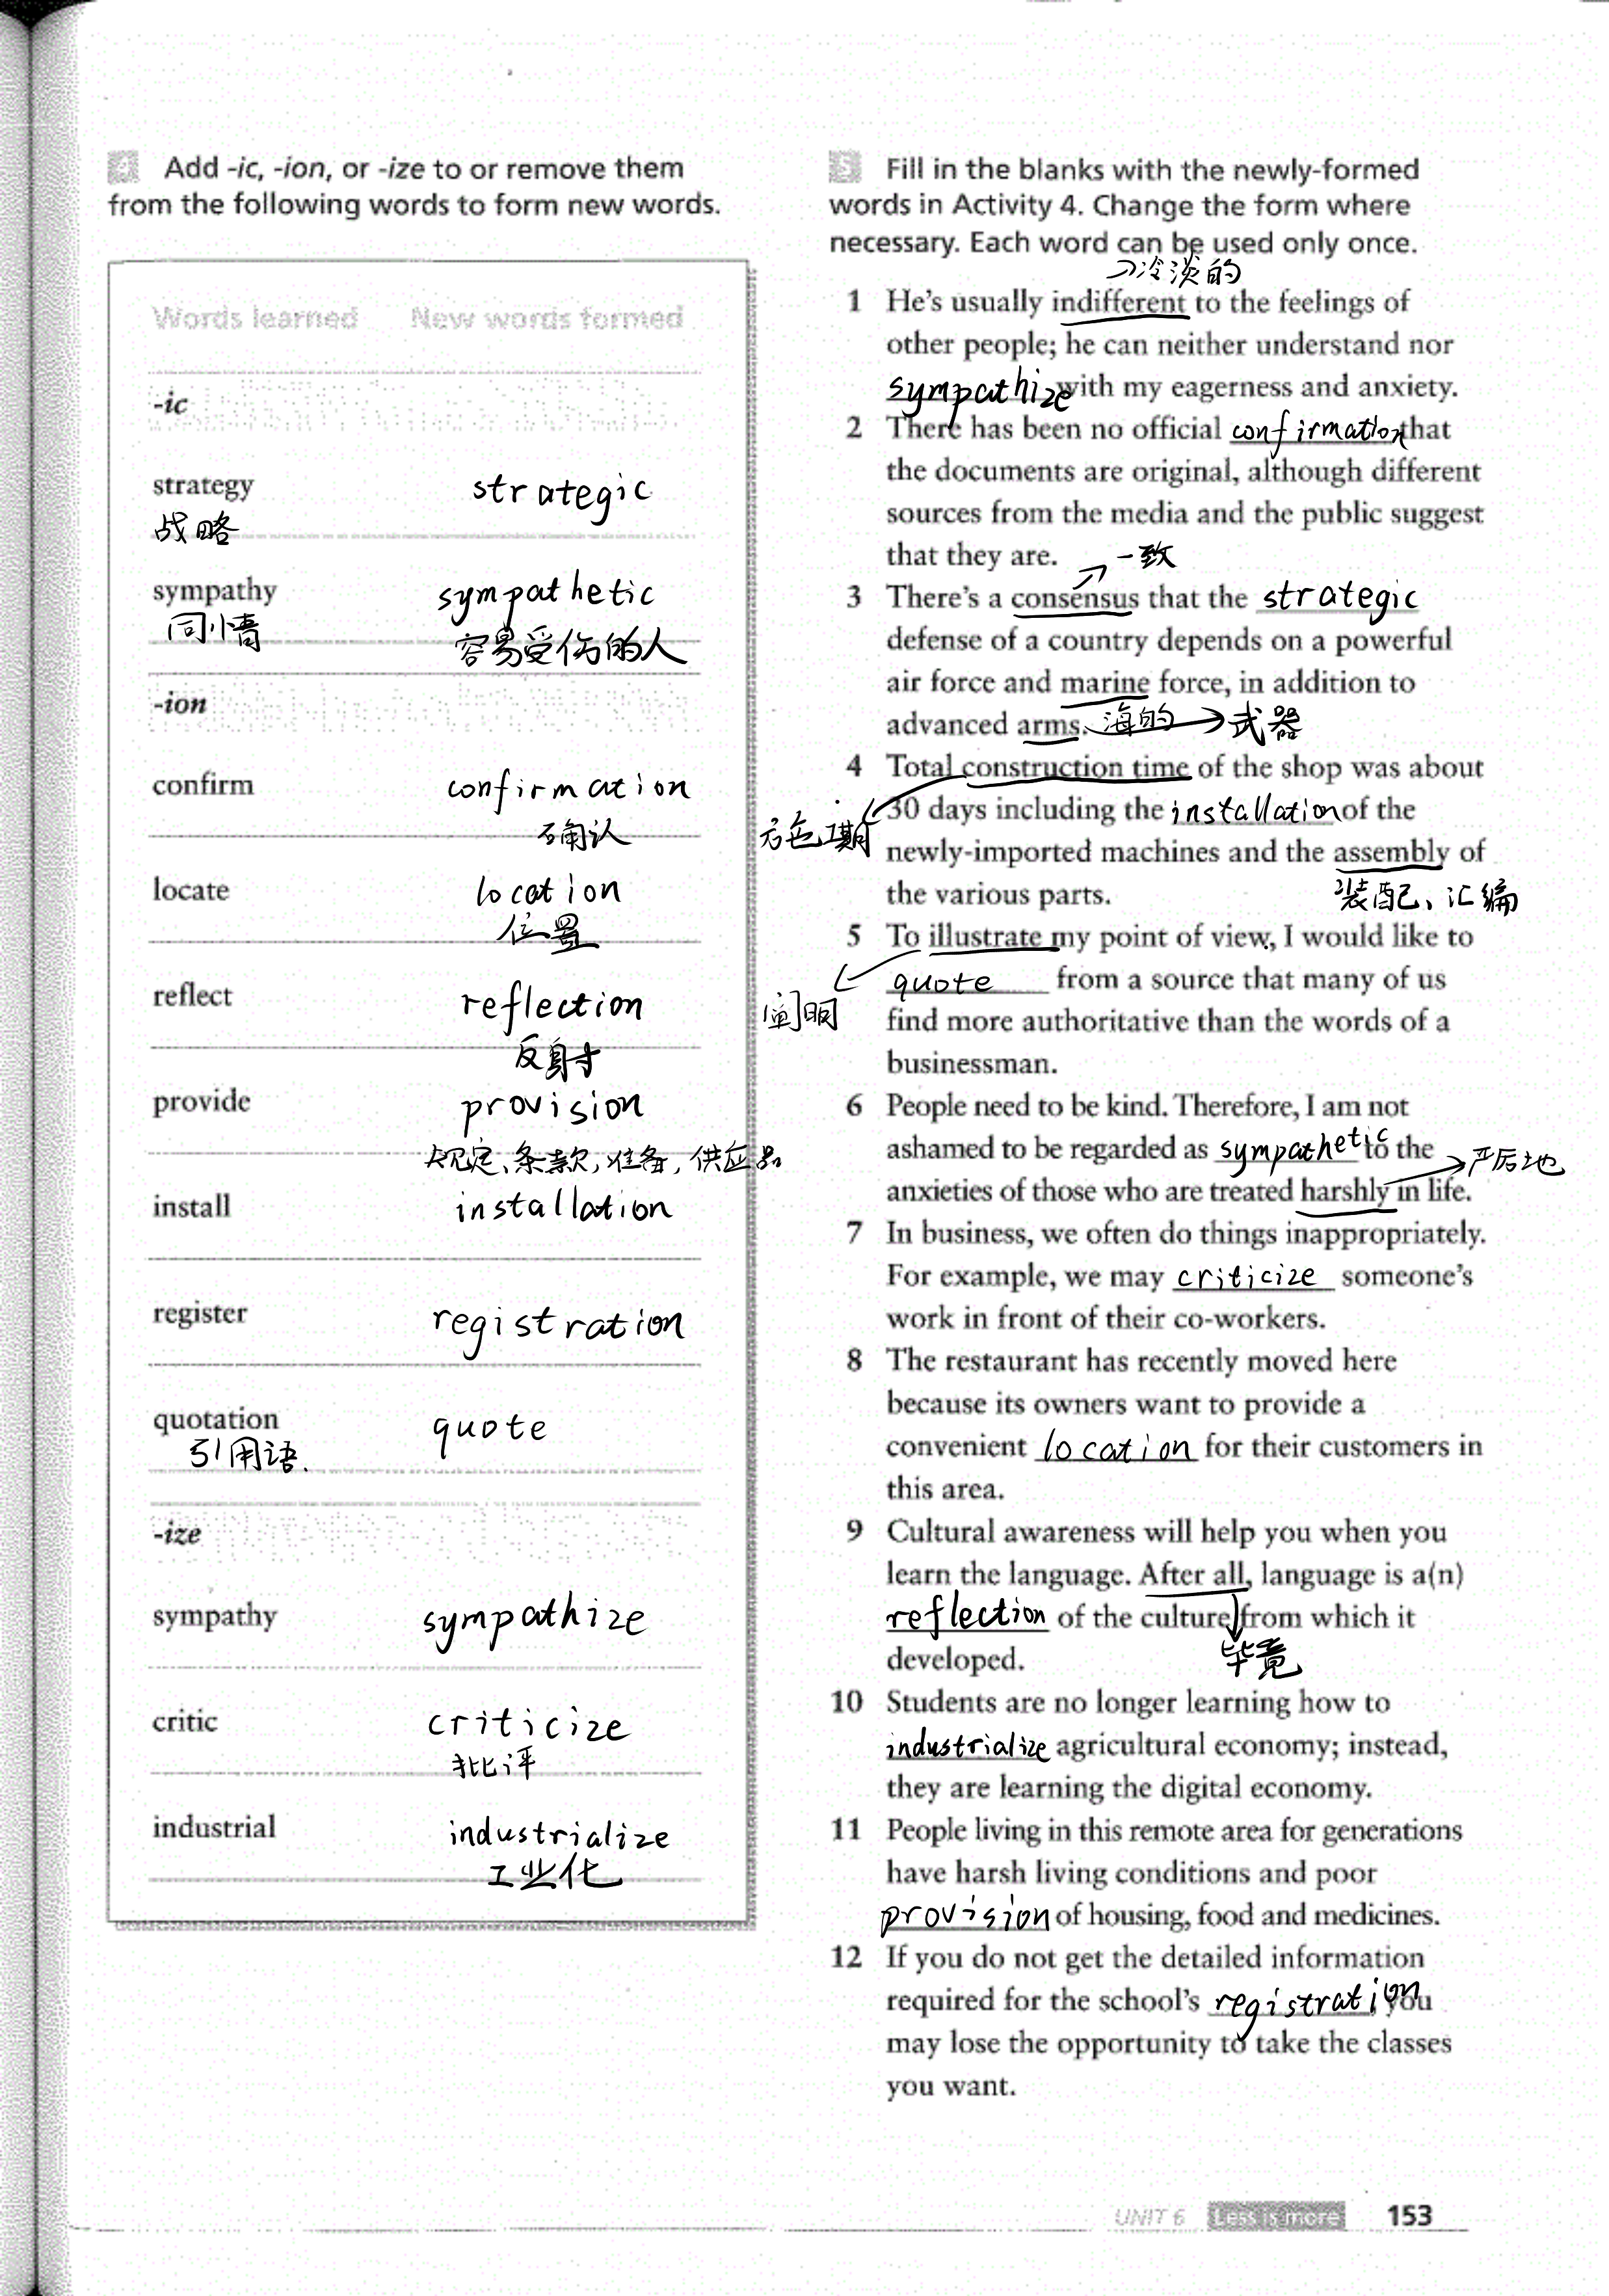 4 Add -ic, -ion, or -ize to or remove them
from the following words to form new words.
Words learned New words formed
-ic
strategy strategic
战略
sympathy sympathetic
同情 容易受伤的人
-ion
confirm confirmation
确认
locate location
位置
reflect reflection
反射
provide provision
规定、条款,准备,供应品
install installation
register registration
quotation quote
引用语.
-ize
sympathy sympathize
critic criticize
批评
industrial industrialize
工业化
5 Fill in the blanks with the newly-formed
words in Activity 4. Change the form where
necessary. Each word can be used only once.
冷淡的
1 He's usually indifferent to the feelings of
other people; he can neither understand nor
sympathize with my eagerness and anxiety.
2 There has been no official confirmation that
the documents are original, although different
sources from the media and the public suggest
that they are.
一致
3 There's a consensus that the strategic
defense of a country depends on a powerful
air force and marine force, in addition to
advanced arms. 海的 武器
4 Total construction time of the shop was about
30 days including the installation of the
newly-imported machines and the assembly of
the various parts. 装配、汇编
5 To illustrate my point of view, I would like to
quote from a source that many of us
阐明
find more authoritative than the words of a
businessman.
6 People need to be kind. Therefore, I am not
ashamed to be regarded as sympathetic to the
严厉地
anxieties of those who are treated harshly in life.
7 In business, we often do things inappropriately.
For example, we may criticize someone's
work in front of their co-workers.
8 The restaurant has recently moved here
because its owners want to provide a
convenient location for their customers in
this area.
9 Cultural awareness will help you when you
learn the language. After all, language is a(n)
reflection of the culture from which it
developed. 毕竟
10 Students are no longer learning how to
industrialize agricultural economy; instead,
they are learning the digital economy.
11 People living in this remote area for generations
have harsh living conditions and poor
provision of housing, food and medicines.
12 If you do not get the detailed information
required for the school's registration, you
may lose the opportunity to take the classes
you want.
UNIT 6 Less is more 153